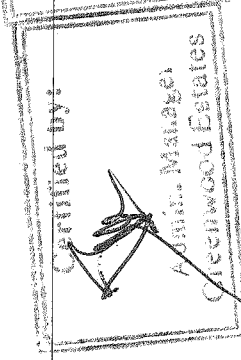 Certified By:
Admin. Manager
Greenwood Estates